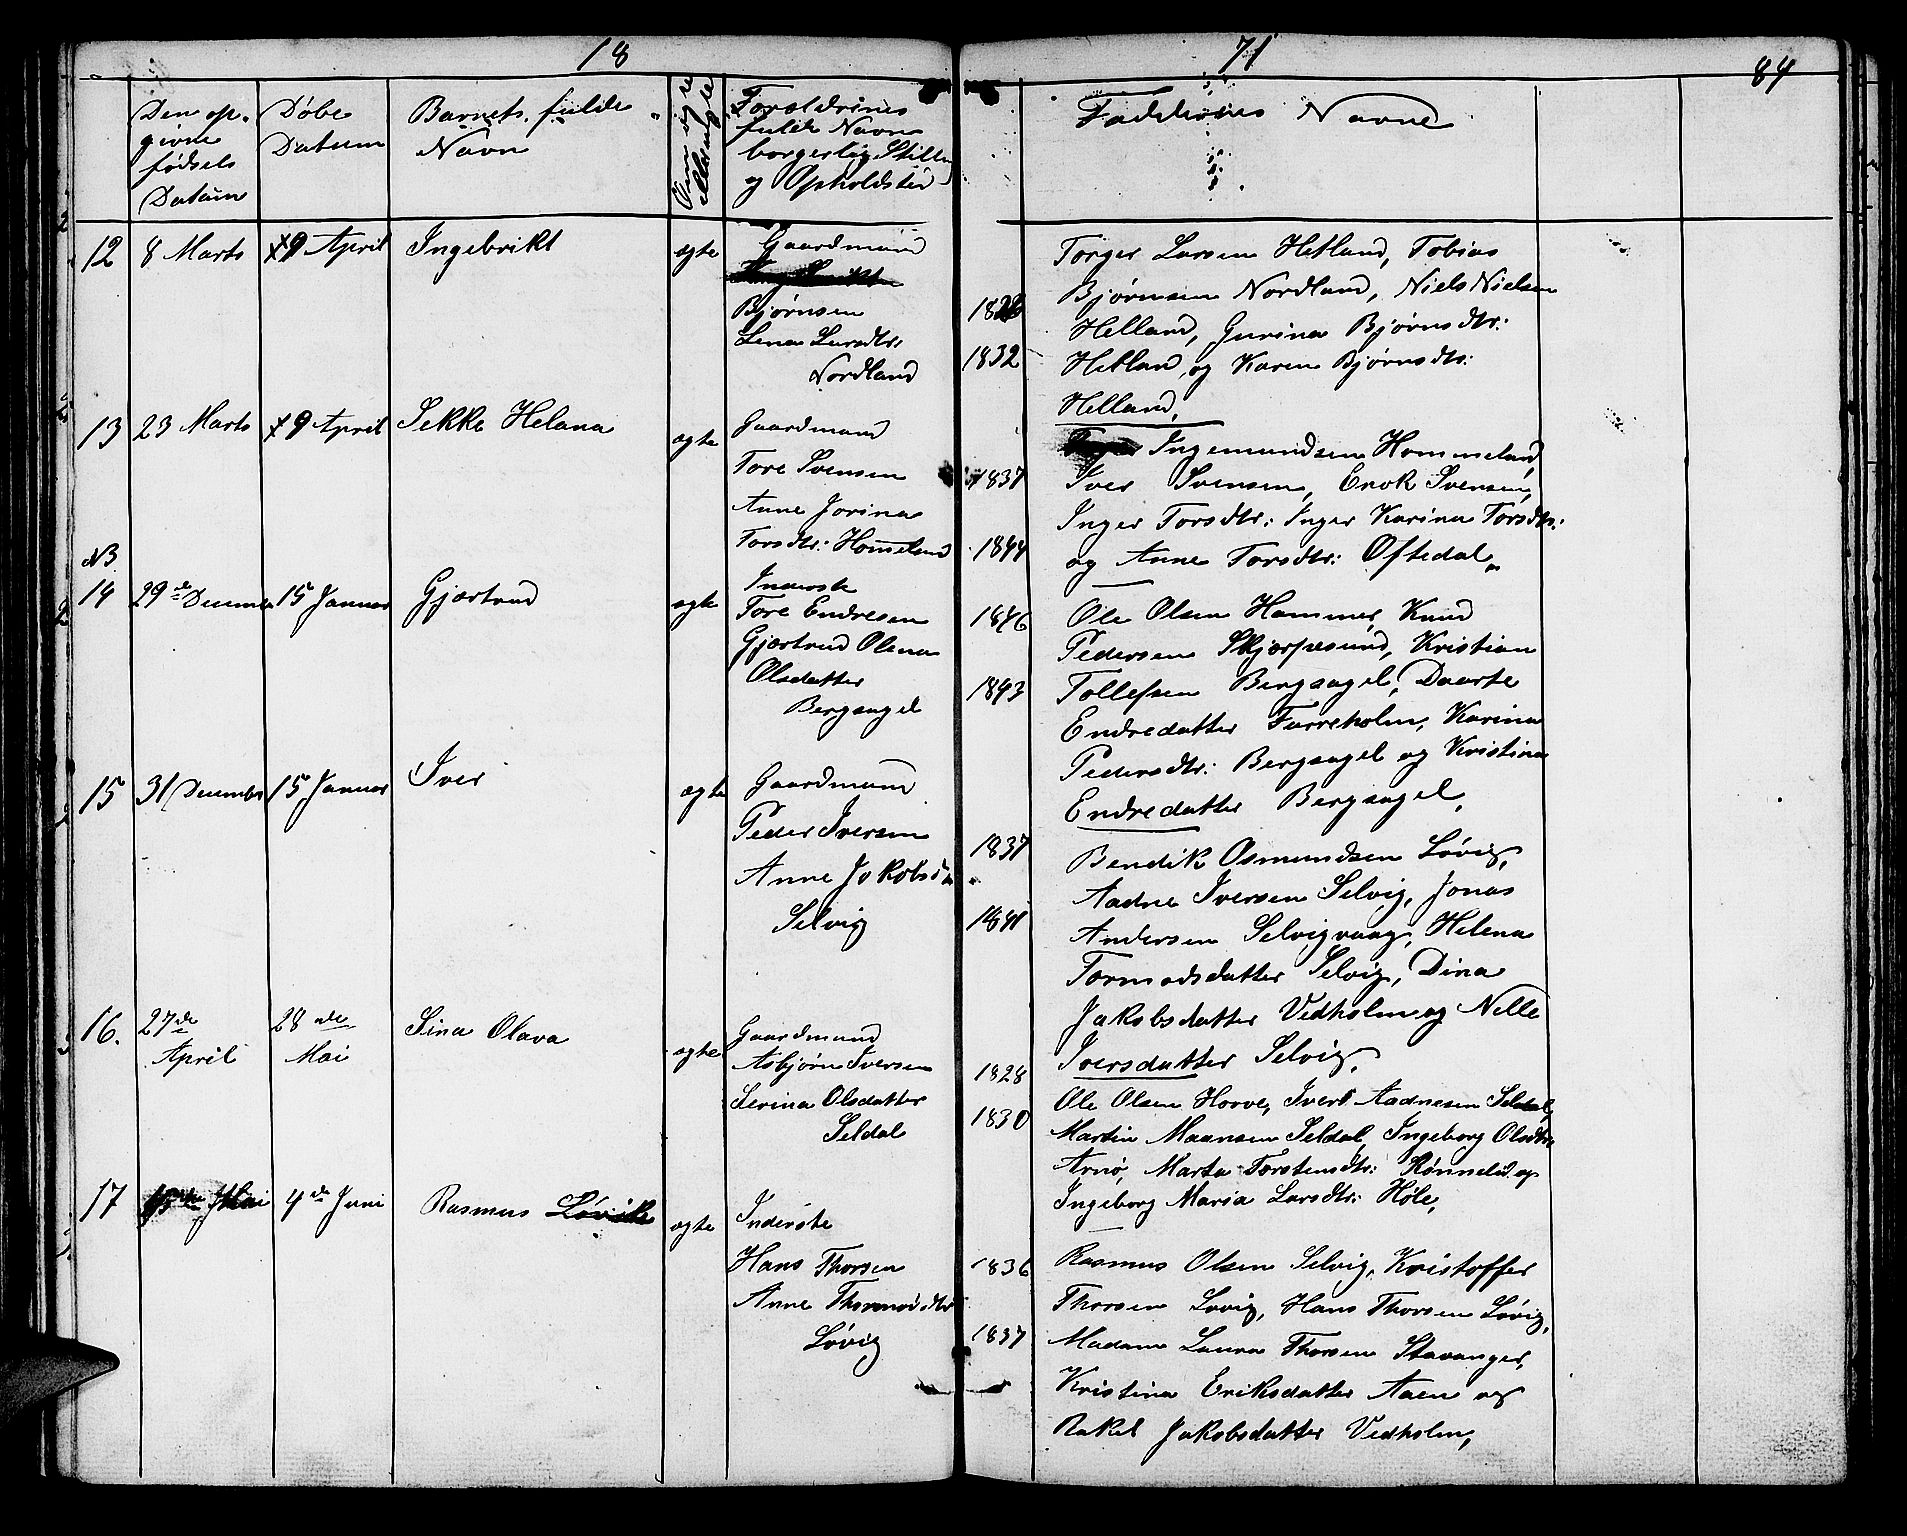 18 71
84
Den op-
givne
fødsels
Datum
Døbe
Datum
Barnets fulde
Navn
Om ægte
eller uægte
Forældrenes
fulde Navn
borgerlig Still
og Opholdsted
Faddernes Navne
12 8 Marts 9 April Ingebrikt ægte
Gaardmand
Bjørnsen
Lena Larsdtr:
Nordland
1832
Torger Larsen Hetland, Tobias
Bjørnsen Nordland, Niels Nielsen
Helland, Gurina Bjørnsdtr:
Hetland, og Karen Bjørnsdtr:
Helland,
13 23 Marts 9 April Sekke Helana ægte
Gaardmand
Tore Svensen
Anne Jorina
Torsdtr: Hommeland
1837
1844
Ingemundsen Hommeland
Iver Svensen, Enok Svensen,
Inger Torsdtr: Inger Karina Torsdtr:
og Anne Torsdtr: Oftedal,
NB
14 29de December 15 Januar Gjærtrud ægte
Inderste
Tore Endresen
Gjærtrud Olena
Olsdatter
Bergsagel
1846
1843
Ole Olsen Hammer, Knud
Pedersen Skjørpesund, Kristian
Tollefsen Bergsagel, Daarte
Endredatter Farreholm, Karina
Pedersdtr: Bergsagel og Kristina
Endredatter Bergsagel,
15 31 December 15 Januar Iver ægte
Gaardmand
Peder Iversen
Anne Jakobsd
Selvig
1837
1841
Bendik Osmundsen Løvig,
Aadne Iversen Selvig, Jonas
Andersen Selvigvaag, Helena
Tormodsdatter Selvig, Dina
Jakobsdatter Vedholm og Nelle
Iversdatter Selvig,
16. 27de
April
28de
Mai
Sina Olava ægte
Gaardmand
Asbjørn Iversen
Serina Olsdatter
Seldal
1828
1830
Ole Olsen Horve, Ivert Aadnesen Seldal,
Martin Maansen Seldal, Ingeborg Olsdtr:
Arnø, Marta Torstensdtr: Rønnelid og
Ingeborg Maria Larsdtr: Høle,
17 Mai 4de Juni Rasmus Løvik ægte
Inderste
Hans Thorsen
Anne Thormodsdtr
Løvig
1836
1837
Rasmus Olsen Selvig, Kristoffer
Thorsen Løvig, Hans Thorsen Løvig,
Madam Laura Thorsen Stavanger,
Kristina Eriksdatter Aaen og
Rakel Jakobsdatter Vedholm,